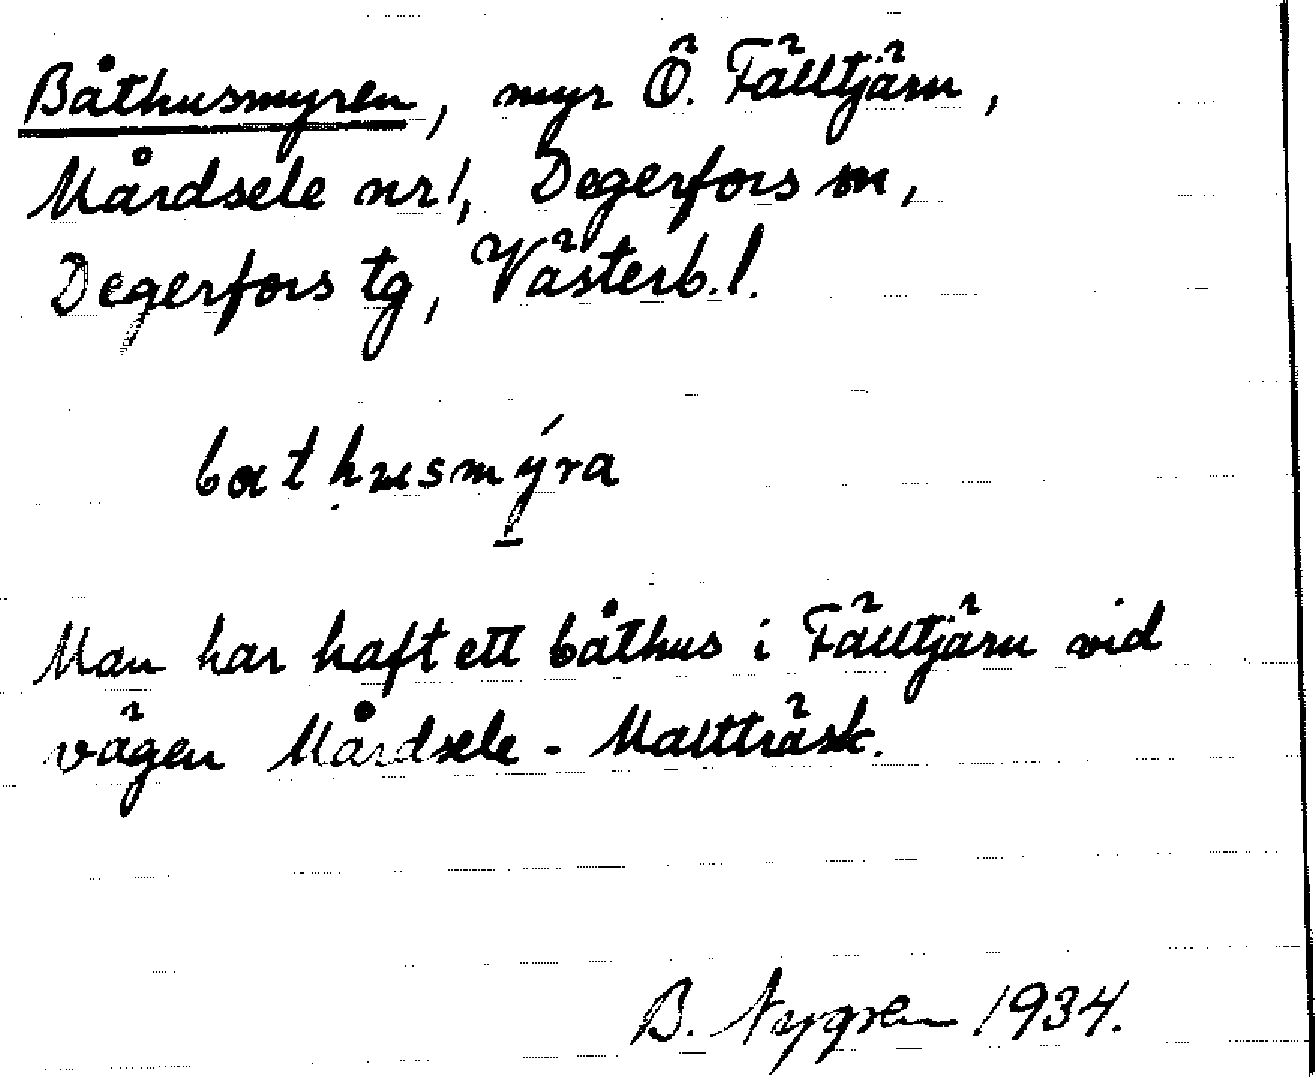 Båthusmyren, myr Ö. Fälltjärn,
Mårdsele nr 1, Degerfors sn,
Degerfors tg, Västerb. l.
bathusmýra
Man har haft ett båthus i Fälltjärn vid
vägen Mårdsele - Maltträsk.
B. Nygren 1934.